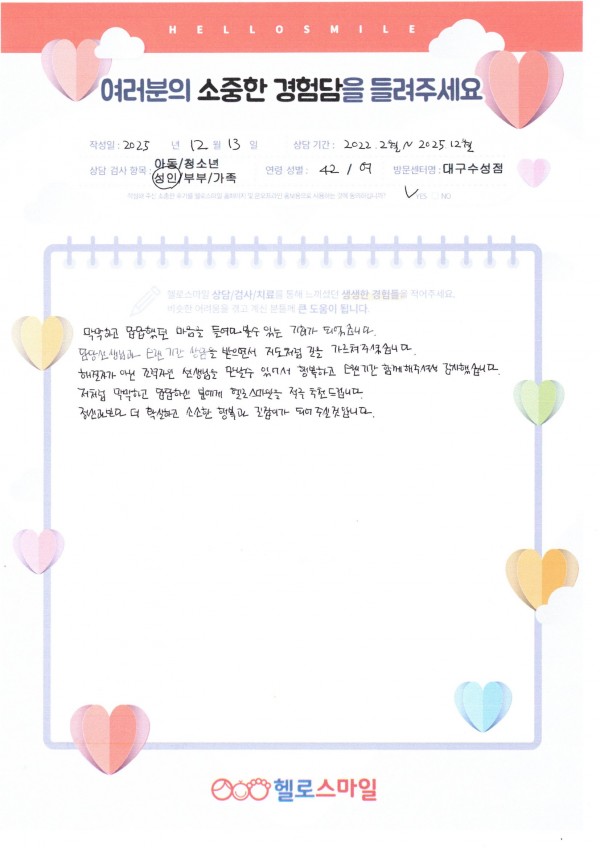 HELLOSMILE
여러분의 소중한 경험담을 들려주세요
작성일 : 2025 년 12 월 13 일 상담 기간 : 2022. 2월 ~ 2025 12월
상담 검사 항목 : 아동/청소년 성인/부부/가족 연령 성별 : 42 / 여 방문센터명 : 대구수성점
작성해 주신 소중한 후기를 헬로스마일 홈페이지 및 온오프라인 홍보용으로 사용하는 것에 동의하십니까? ✓ YES NO
헬로스마일 상담/검사/치료를 통해 느끼셨던 생생한 경험들을 적어주세요.
비슷한 어려움을 겪고 계신 분들께 큰 도움이 됩니다.
막막하고 답답했던 마음을 들여다 볼수 있는 기회가 되었습니다.
담당선생님과 오랜기간 상담을 받으면서 지도처럼 길을 가르쳐주셨습니다.
해결자가 아닌 조력자인 선생님을 만날수 있어서 행복하고 오랜기간 함께해주셔서 감사했습니다.
저처럼 막막하고 답답하신 분에게 헬로스마일을 적극 추천드립니다.
정신과보다 더 확실하고 소소한 행복과 길잡이가 되어주실것입니다.
헬로스마일